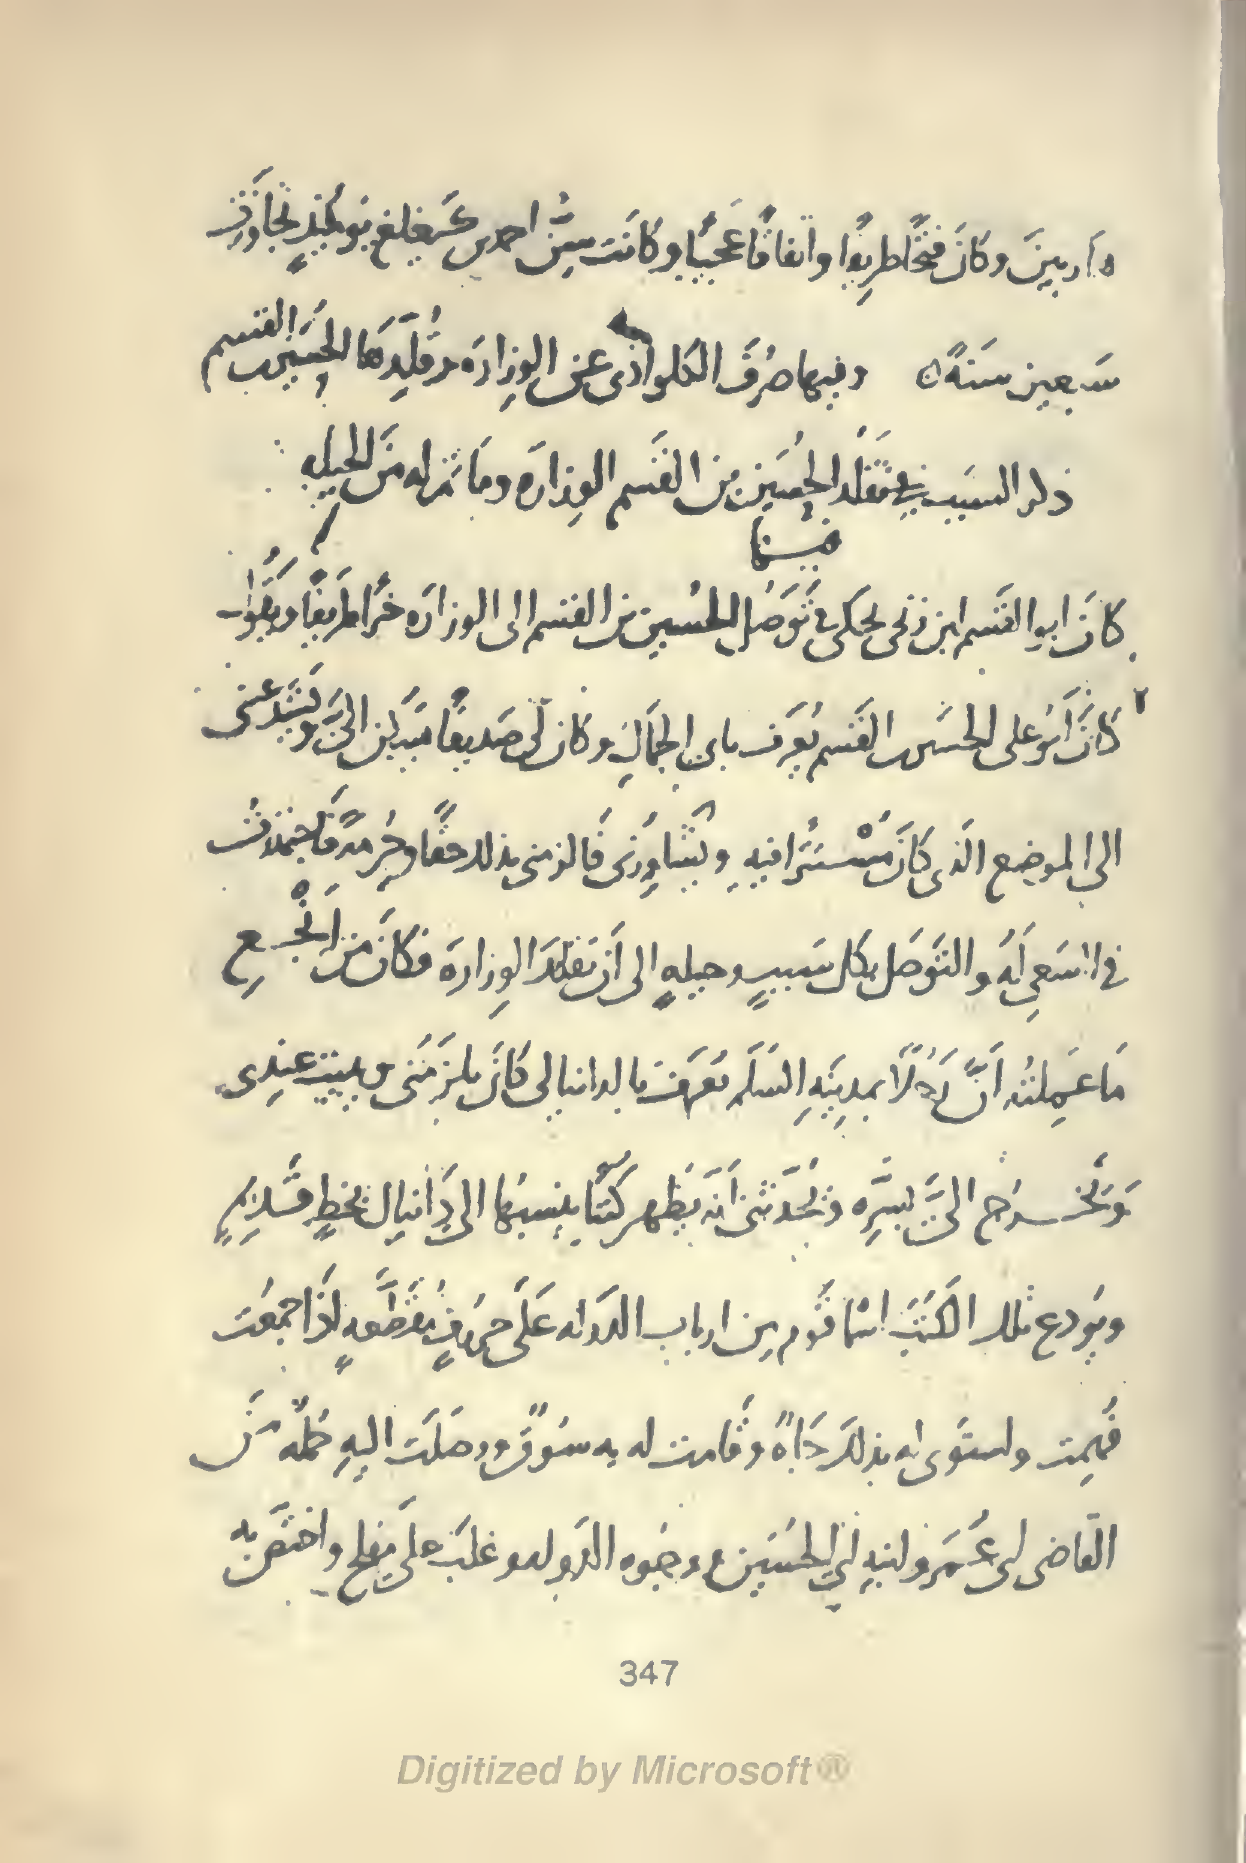 وا ربينَ وكانَ فتحًا طريفًا واتفاقًا عَجيبًا وكانَت سِنُّ احمد بن كَيغلغ يَومَئِذٍ تجاوَزَت
سَبعين سَنةً ۞ وفيها صُرفَ الكلواذى عن الوزارَه وقُلِّدَها الحسَين بن القسم
ذكر السبَب فى تقلد الحُسَين بن القَسم الوِزارَه وما تمَّ له مِنَ الحيلِه
فيها
كانَ ابو القَسم ابن زنجى يحكى فى تَوَصُّل الحسين بن القسم الى الوزارَه خبرًا طَريفًا وهو
كانَ أبو على الحسَين بن القَسم يُعرَف بابى الجمَال وكان لى صَديقًا يسكن الىَّ ويَستَدعينى
الى الموضِع الذى كانَ مُسْتَترًا فيهِ ويُشاورُنى فالزمنى بذلك حقًّا وحُرمةً فاجتهَدتُ
فى السَعِى لَهُ والتَوَصّل بكل سَببٍ وحيلهٍ الى أن تقلدَ الوِزارَه فكانَ من أنْجَعِ
مَا عَمِلتُه أنَّ رَجُلًا بمدِينَةِ السَلَم يُعرَف بالدانيالى كانَ يلزَمُنى ويبيت عندى
وَيَخرُج الىَّ بسِرِّه ويُحَدّثنى أنَه يُظهر كتُبًا ينسبُها الى دَانيال بخطٍ قَديمٍ
ويُودع تلك الكتُب اسْمَا قوم من ارباب الدَوله عَلَى حُروفٍ مُقَطَّعهٍ إذَا جمعَت
فُهِمت واستَوى له بذلكَ جَاهٌ وقَامت له به سُوقٌ ووصَلَت اليهِ جُملةٌ مِن
القاضى ابى عُمَر وابنهِ ابى الحُسَين ووجُوه الدَوله وغلبَ على مُفلح واختَصَّ به
347
Digitized by Microsoft®